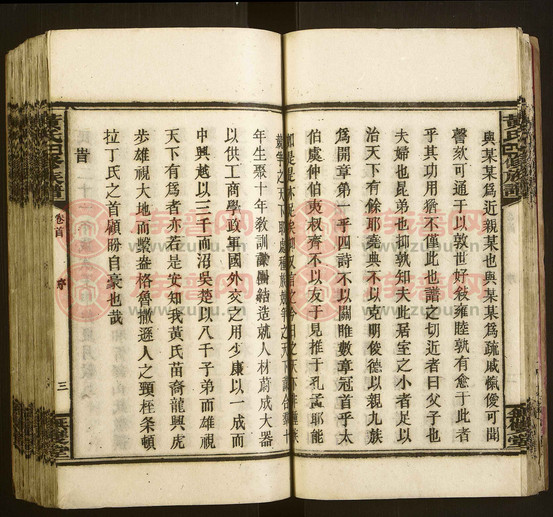 與某某為近親某也與某某為疏戚佩俊可聞
聲欬可通于以敦世好敍雍睦孰有愈于此者
乎其功用猶不僅此也譜之切近者曰父子也
夫婦也昆弟也抑孰知夫此居室之小者足以
治天下有餘耶堯典不以克明俊德以親九族
為開章第一乎四詩不以關雎數章冠首乎太
伯虞仲伯夷叔齊不以友于見推于孔孟耶能
年生聚十年教訓結造就人材蔚成大器
以供工商學政軍國外交之用少康以一成而
中興越以三千而沼吳楚以八千子弟而雄視
天下有為者亦若是安知我黃氏苗裔龍興虎
步雄視大地而縶盎格魯撒遜人之頸桎條頓
拉丁氏之首顧盼自豪也哉
旹
黃氏四修族譜
卷首
序
三